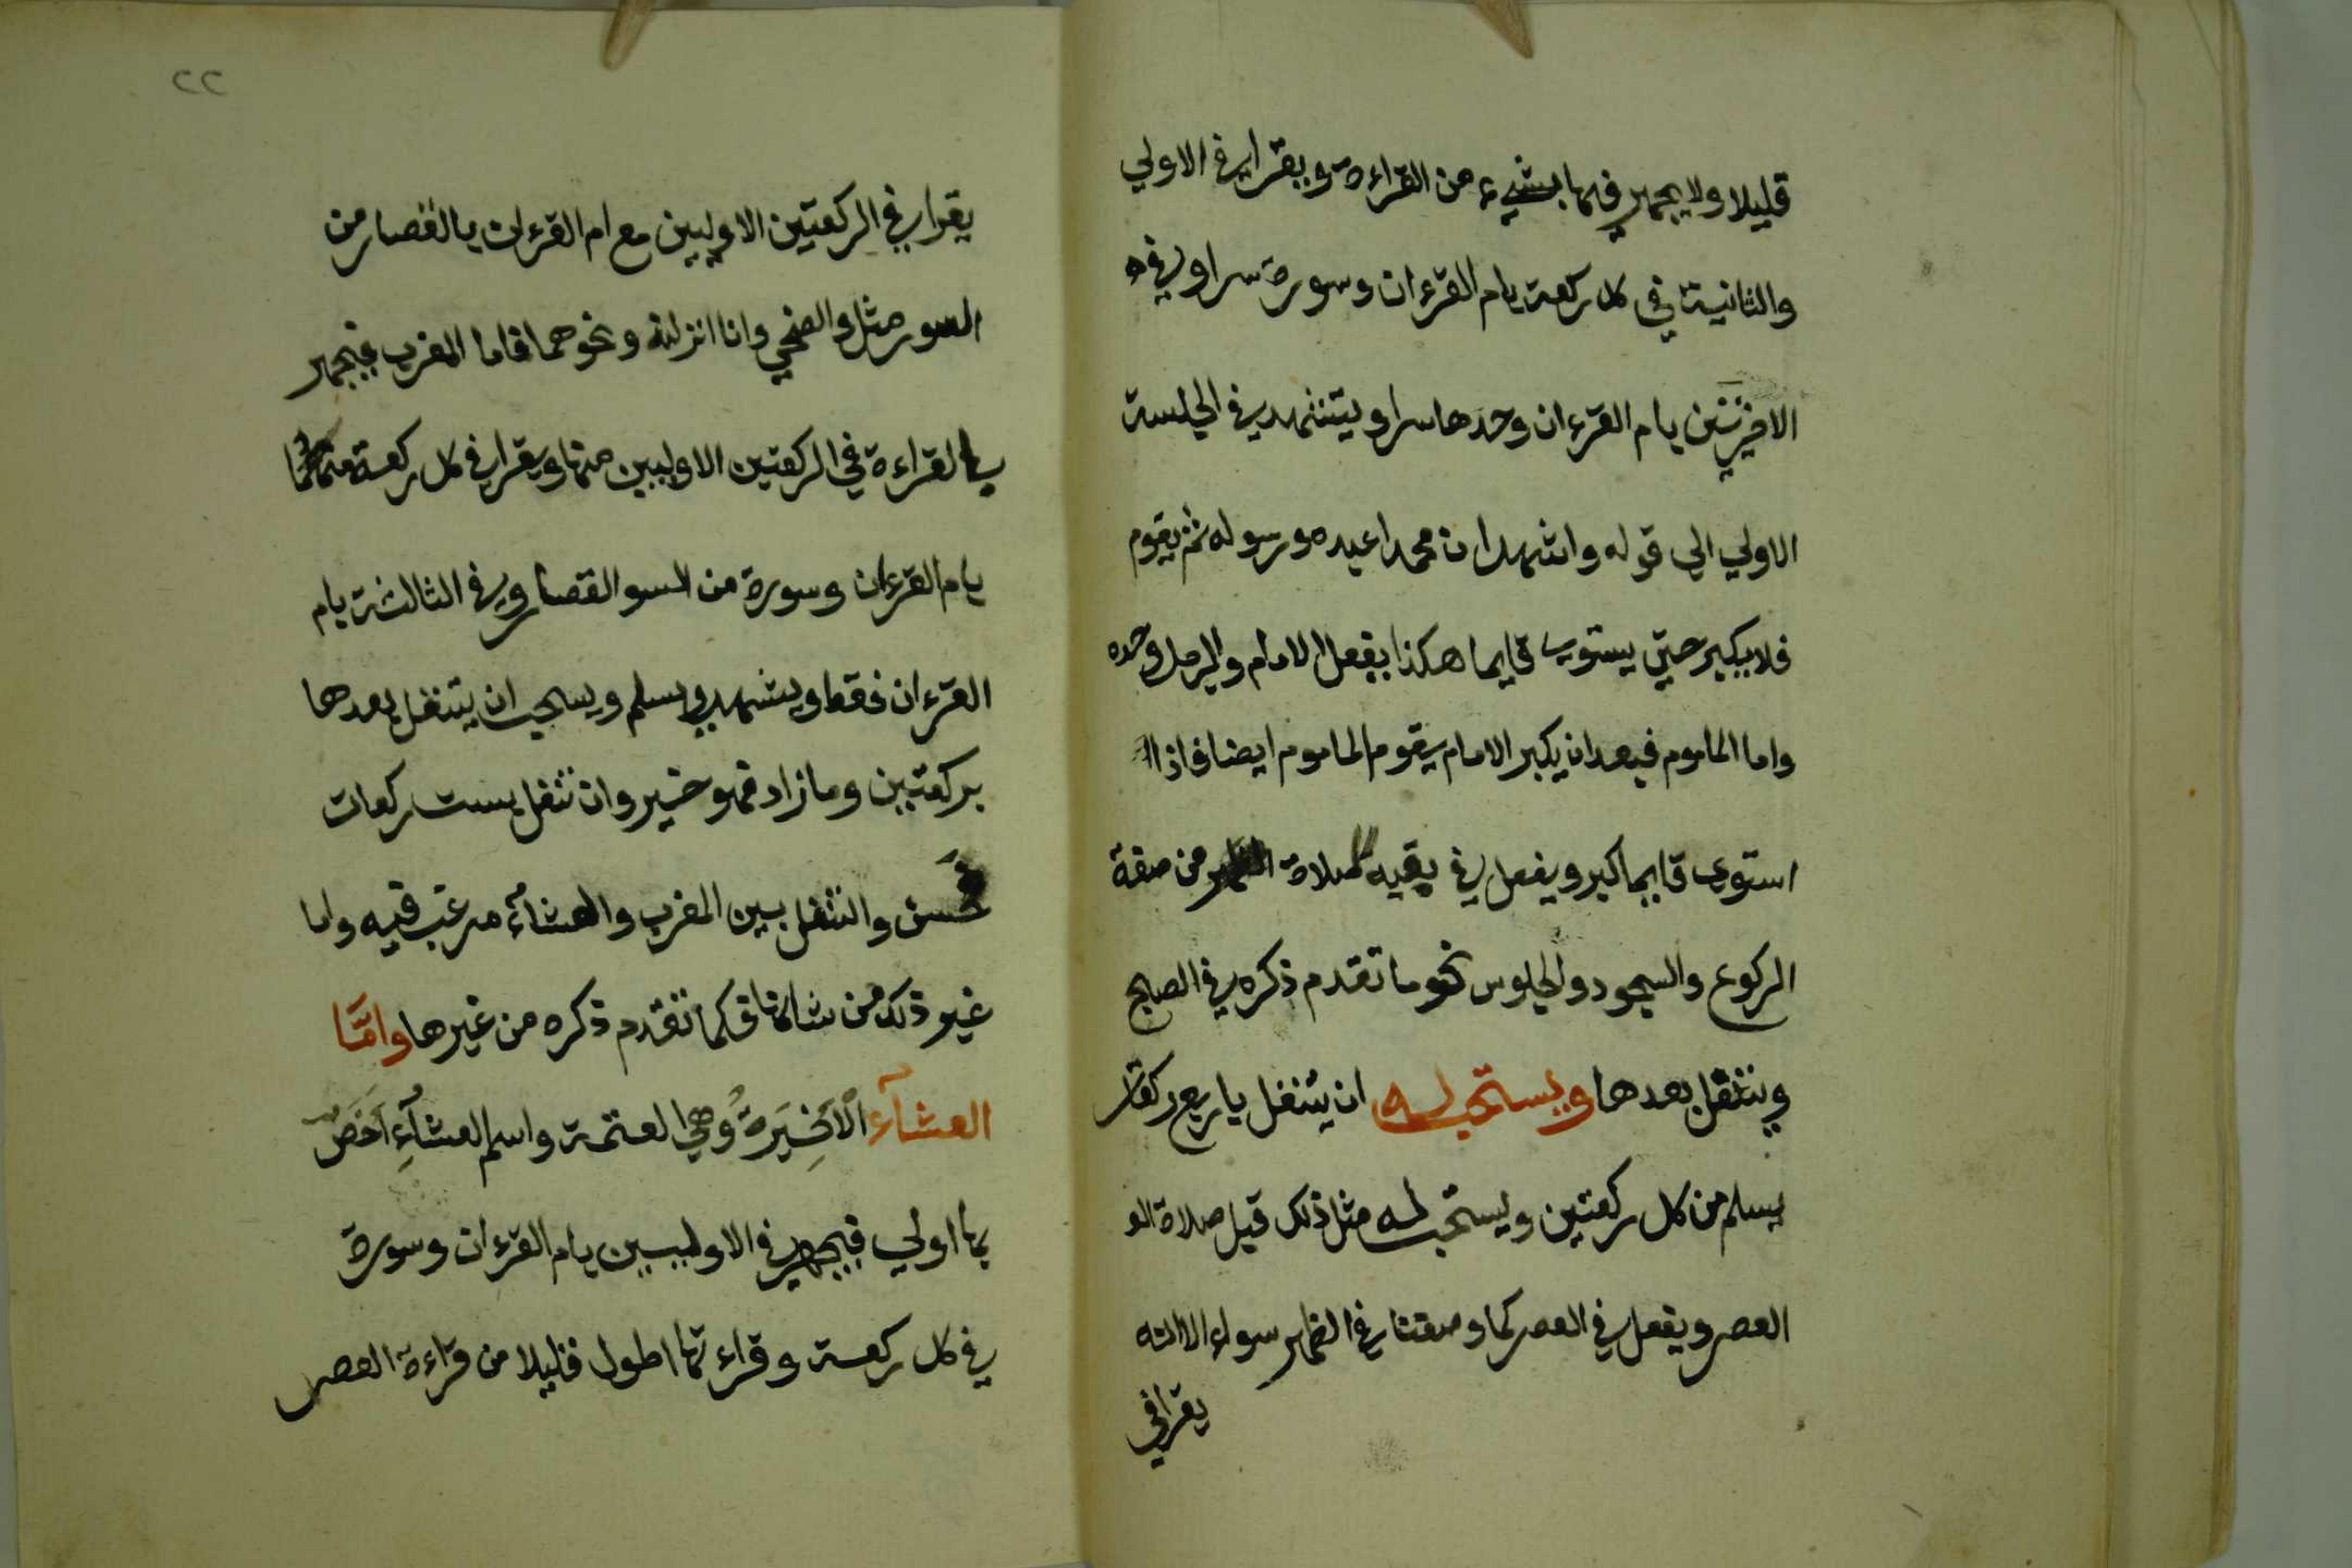 قليلا ولا يجهر فيها بشيء من القراءة ويقرا في الاولي
والثانية في كل ركعة بام القرءان وسورة سرا وفي
الاخيرتين بام القرءان وحدها سرا ويتشهد في الجلسة
الاولي الي قوله واشهد ان محمدا عبده ورسوله ثم يقوم
فلا يكبر حتي يستوي قايما هكذا يفعل الامام والرجل وحده
واما الماموم فبعد ان يكبر الامام يقوم الماموم ايضا فاذا
استوي قايما كبر ويفعل في بقيه صلاة الظهر من صفة
الركوع والسجود والجلوس نحو ما تقدم ذكره في الصبح
ويتنفل بعدها ويستحب له ان يتنفل باربع ركعات
يسلم من كل ركعتين ويستحب له مثل ذلك قبل صلاة الع
العصر ويفعل في العصر كما وصفنا في الظهر سواء الا انه
يقرا في
٢٢
يقرا في الركعتين الاوليين مع ام القرءان بالقصار من
السور مثل والضحي وانا انزلنه ونحوهما فاما المغرب فيجهر
بالقراءة في الركعتين الاوليين منها ويقرا في كل ركعة منهما
بام القرءان وسورة من السو القصار وفي الثالثة بام
القرءان فقط ويتشهد ويسلم ويستحب ان يتنفل بعدها
بركعتين وما زاد فهو خير وان تنفل بست ركعات
فحسن والتنفل بين المغرب والعشاء مرغب فيه واما
غير ذلك من شانها فكما تقدم ذكره من غيرها وامَّا
العشآء الاَخِيَرةُ وهي العتمة واسم العشآءِ اَخَصُّ
بها اولي فيجهر في الاوليين بام القرءان وسورة
في كل ركعة وقراءتها اطول قليلا من قراءة العصر